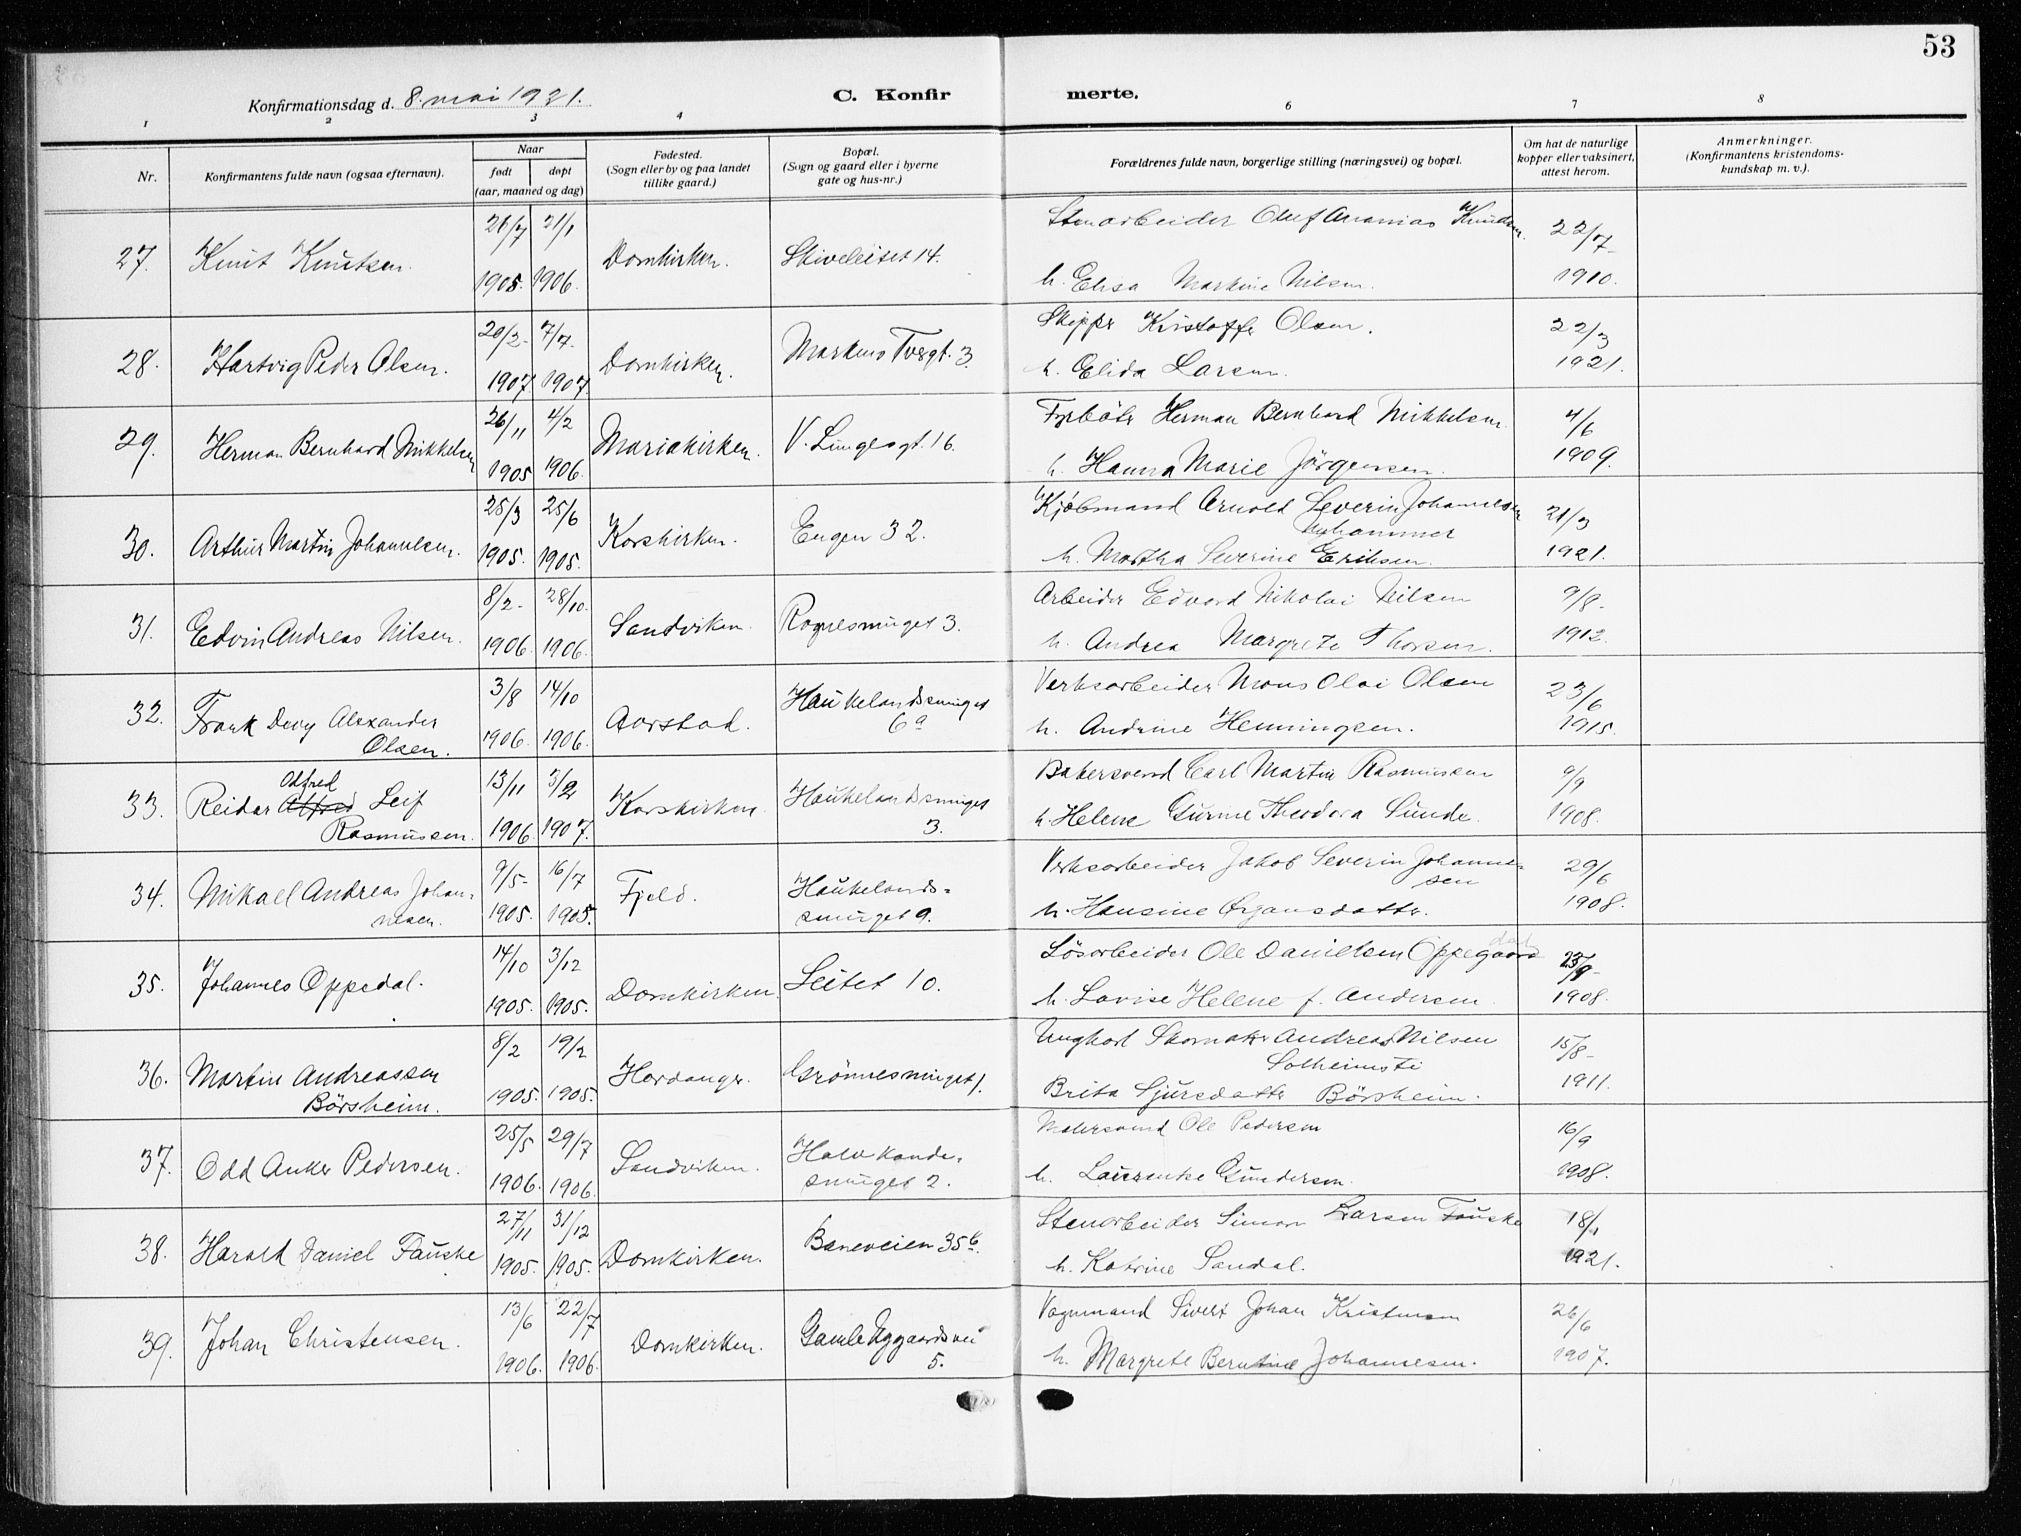 53
Konfirmationsdag d. 8. mai 1921.
C. Konfir merte.
1 2 3 4 6 7 8
Nr.
Konfirmantens fulde navn (ogsaa efternavn).
Naar
født døpt
(aar, maaned og dag)
Fødested.
(Sogn eller by og paa landet
tillike gaard.)
Bopæl.
(Sogn og gaard eller i byerne
gate og hus-nr.)
Forældrenes fulde navn, borgerlige stilling (næringsvei) og bopæl.
Om hat de naturlige
kopper eller vaksinert,
attest herom.
Anmerkninger.
(Konfirmantens kristendoms-
kundskap m. v.).
27. Knut Knutsen. 26/7 1905. 21/1 1906. Domkirken. Skiveleitet 14. Stenarbeider Oluf Ananias Knudsen. 22/7 1910.
h. Elisa Martine Nilsen.
28. Hartvig Peder Olsen. 20/2 1907 7/7 1907 Domkirken. Markens Tvergt. 3. Skipper Kristoffer Olsen. 22/3 1921.
h. Elida Larsen.
29. Herman Bernhard Mikkelsen 26/11 1905 4/2 1906. Mariakirken. V. Lungesgt. 16. Fyrbøter Herman Bernhard Mikkelsen. 4/6 1909.
h. Hanna Marie Jörgensen.
30. Arthur Martin Johannesen. 25/3 1905. 25/6 1905. Korskirken. Engen 32. Kjøbmand Arnold Severin Johannesen 21/3 1921.
h. Martha Severine Eriksen.
31. Edvin Andreas Nilsen. 8/2 1906. 28/10 1906. Sandviken. Rognesmuget 3. Arbeider Edvard Nikolai Nilsen 9/8 1912.
h. Andrea Margrete Thorsen.
32. Frank Devy Alexander
Olsen. 3/8 1906. 14/10 1906. Aarstad. Haukelandsmuget
6a Verksarbeider Mons Olai Olsen 23/6 1915.
h. Andrine Henningsen.
33. Odfred
Reidar Alfred Leif
Rasmussen. 13/11 1906. 3/2 1907. Korskirken. Haukelandsmuget
3. Bakersvend Carl Martin Rasmussen 9/9 1908.
h. Helene Gurine Theodora Sunde.
34. Mikael Andreas Johan-
nesen. 9/5 1905. 16/7 1905. Fjeld. Haukelands-
smuget 9. Verksarbeider Jakob Severin Johanne-
sen 29/6 1908.
h. Hansine Ørjansdatter.
35. Johannes Oppedal. 14/10 1905. 3/12 1905. Domkirken. Leitet 10. Løsarbeider Ole Danielsen Oppegaard 23/9 1908.
h. Lovise Helene f. Andersen
36. Martin Andreassen
Börsheim. 8/2 1905. 19/2 1905. Hardanger. Grönnesmuget 1. Ungkarl Skomaker Andreas Nilsen
Solheimsti 15/8 1911.
Brita Sjursdatter Börsheim.
37. Odd Anker Pedersen. 25/5 1906. 29/7 1906. Sandviken. Halvkande-
smuget 2. Malersvend Ole Pedersen 16/9 1908.
h. Laurentze Gundersen.
38. Harald Daniel Fauske 27/11 1905. 31/12 1905. Domkirken. Baneveien 35b. Stenarbeider Simon Larsen Fauske 18/1 1921.
h. Katrine Sandal.
39. Johan Christensen. 13/6 1906. 22/7 1906. Domkirken. Gamle Nygaardsvei
5. Vognmand Sivert Johan Kristensen 26/6 1907.
h. Margrete Berntine Johannesen.